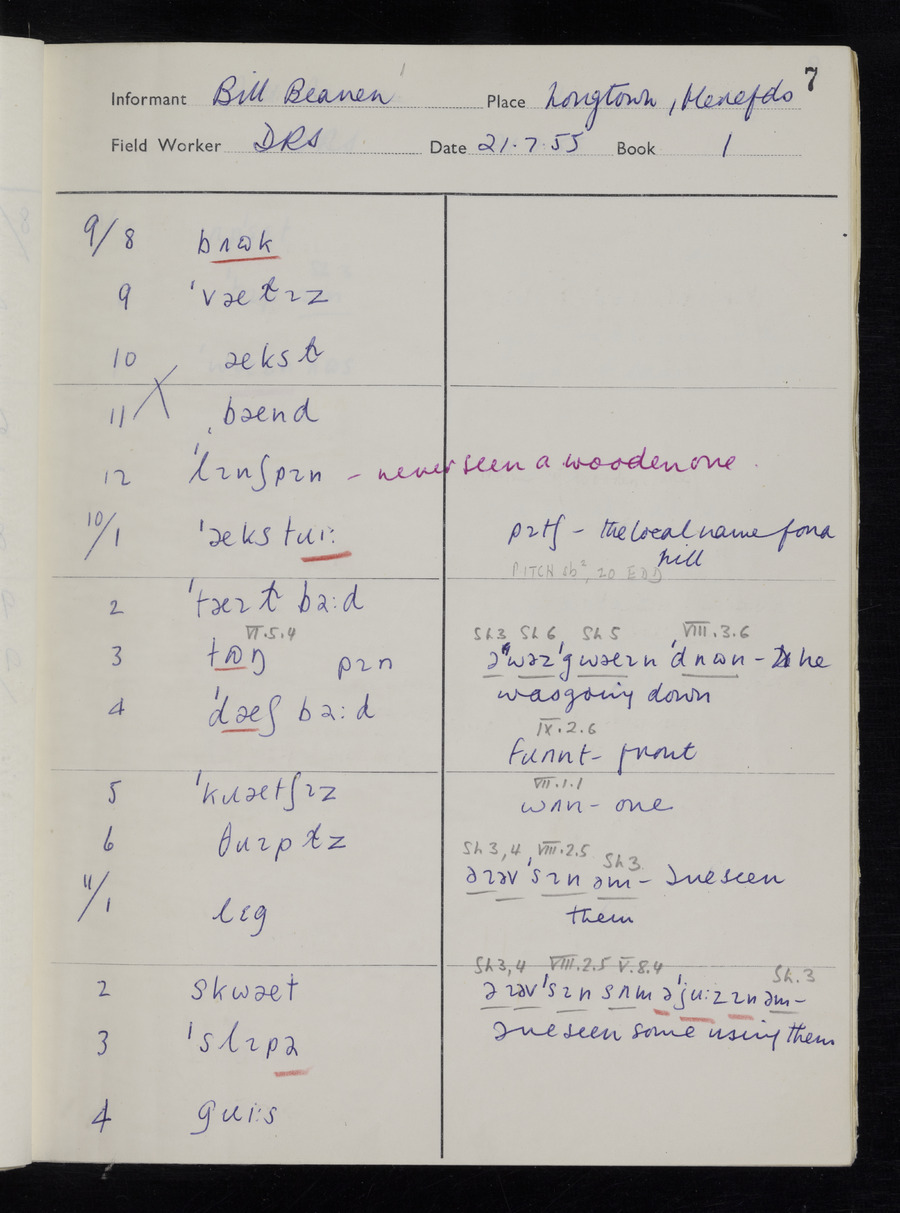 7
Informant Bill Beanen Place Longtown, Herefds
Field Worker DRS Date 21.7.55 Book 1
9/8 bɹɷk
9 ˈvætɪz
10 ækst
11 bænd
12 ˈlɪnʃpɪn – never seen a wooden one.
10/1 ˈækstɹiː pɪtʃ – the local name for a
hill
PITCH sb², 20 EDD
2 ˈtæɪt bəːd
VI.5.4 Sh3 Sh6 Sh5 VIII.3.6
3 tɷŋ pɪn əˈwəz ˈgwæɪn ˈdɹɷn – he
was going down
4 ˈdæʃ bəːd
IX.2.6
fɹʌnt – front
VII.1.1
5 ˈkɹætʃɪz wʌn – one
6 θɹɪptz
Sh3,4 VIII.2.5 Sh3
əɪəv ˈsɪn əm – I've seen
11/1 lɛg them
Sh3,4 VIII.2.5 V.8.4 Sh.3
2 skwæt əɪəv ˈsɪn sʌm əˈjuːzɪn əm –
I've seen some using them
3 ˈslɪpə
4 gɹiːs